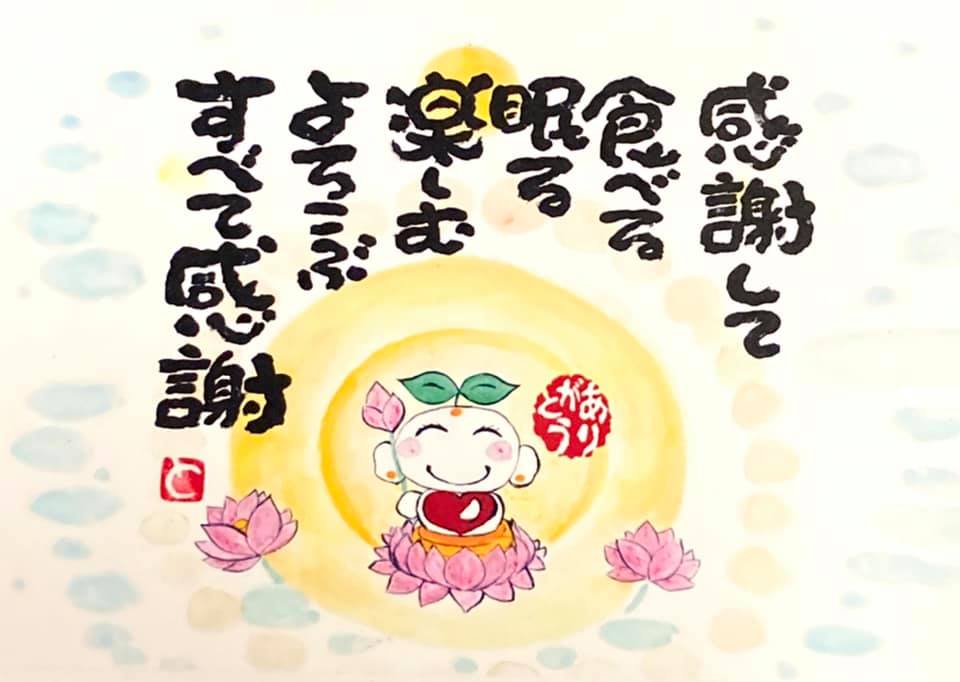 感謝して
食べる
眠る
楽しむ
よろこぶ
すべて感謝
ありがとう
と